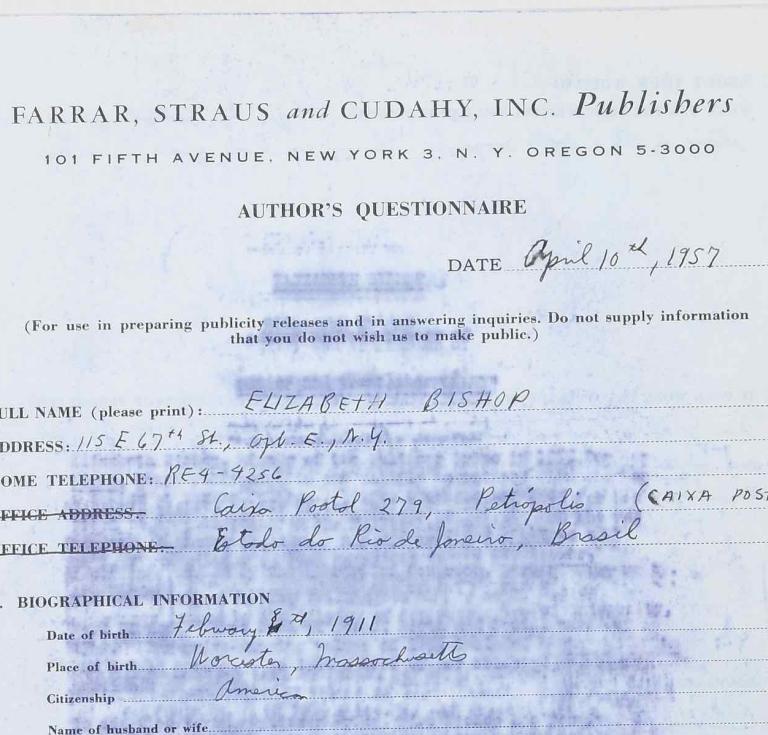 FARRAR, STRAUS and CUDAHY, INC. Publishers
101 FIFTH AVENUE, NEW YORK 3, N. Y. OREGON 5-3000
AUTHOR'S QUESTIONNAIRE
DATE April 10th, 1957
(For use in preparing publicity releases and in answering inquiries. Do not supply information
that you do not wish us to make public.)
ULL NAME (please print): ELIZABETH BISHOP
DDRESS: 115 E 67th St., Apt. E., N.Y.
OME TELEPHONE: RE4-4256
FFICE ADDRESS: Caixa Postal 279, Petrópolis (CAIXA POST
FFICE TELEPHONE: Estado do Rio de Janeiro, Brasil
. BIOGRAPHICAL INFORMATION
Date of birth February 8th, 1911
Place of birth Worcester, Massachusetts
Citizenship American
Name of husband or wife